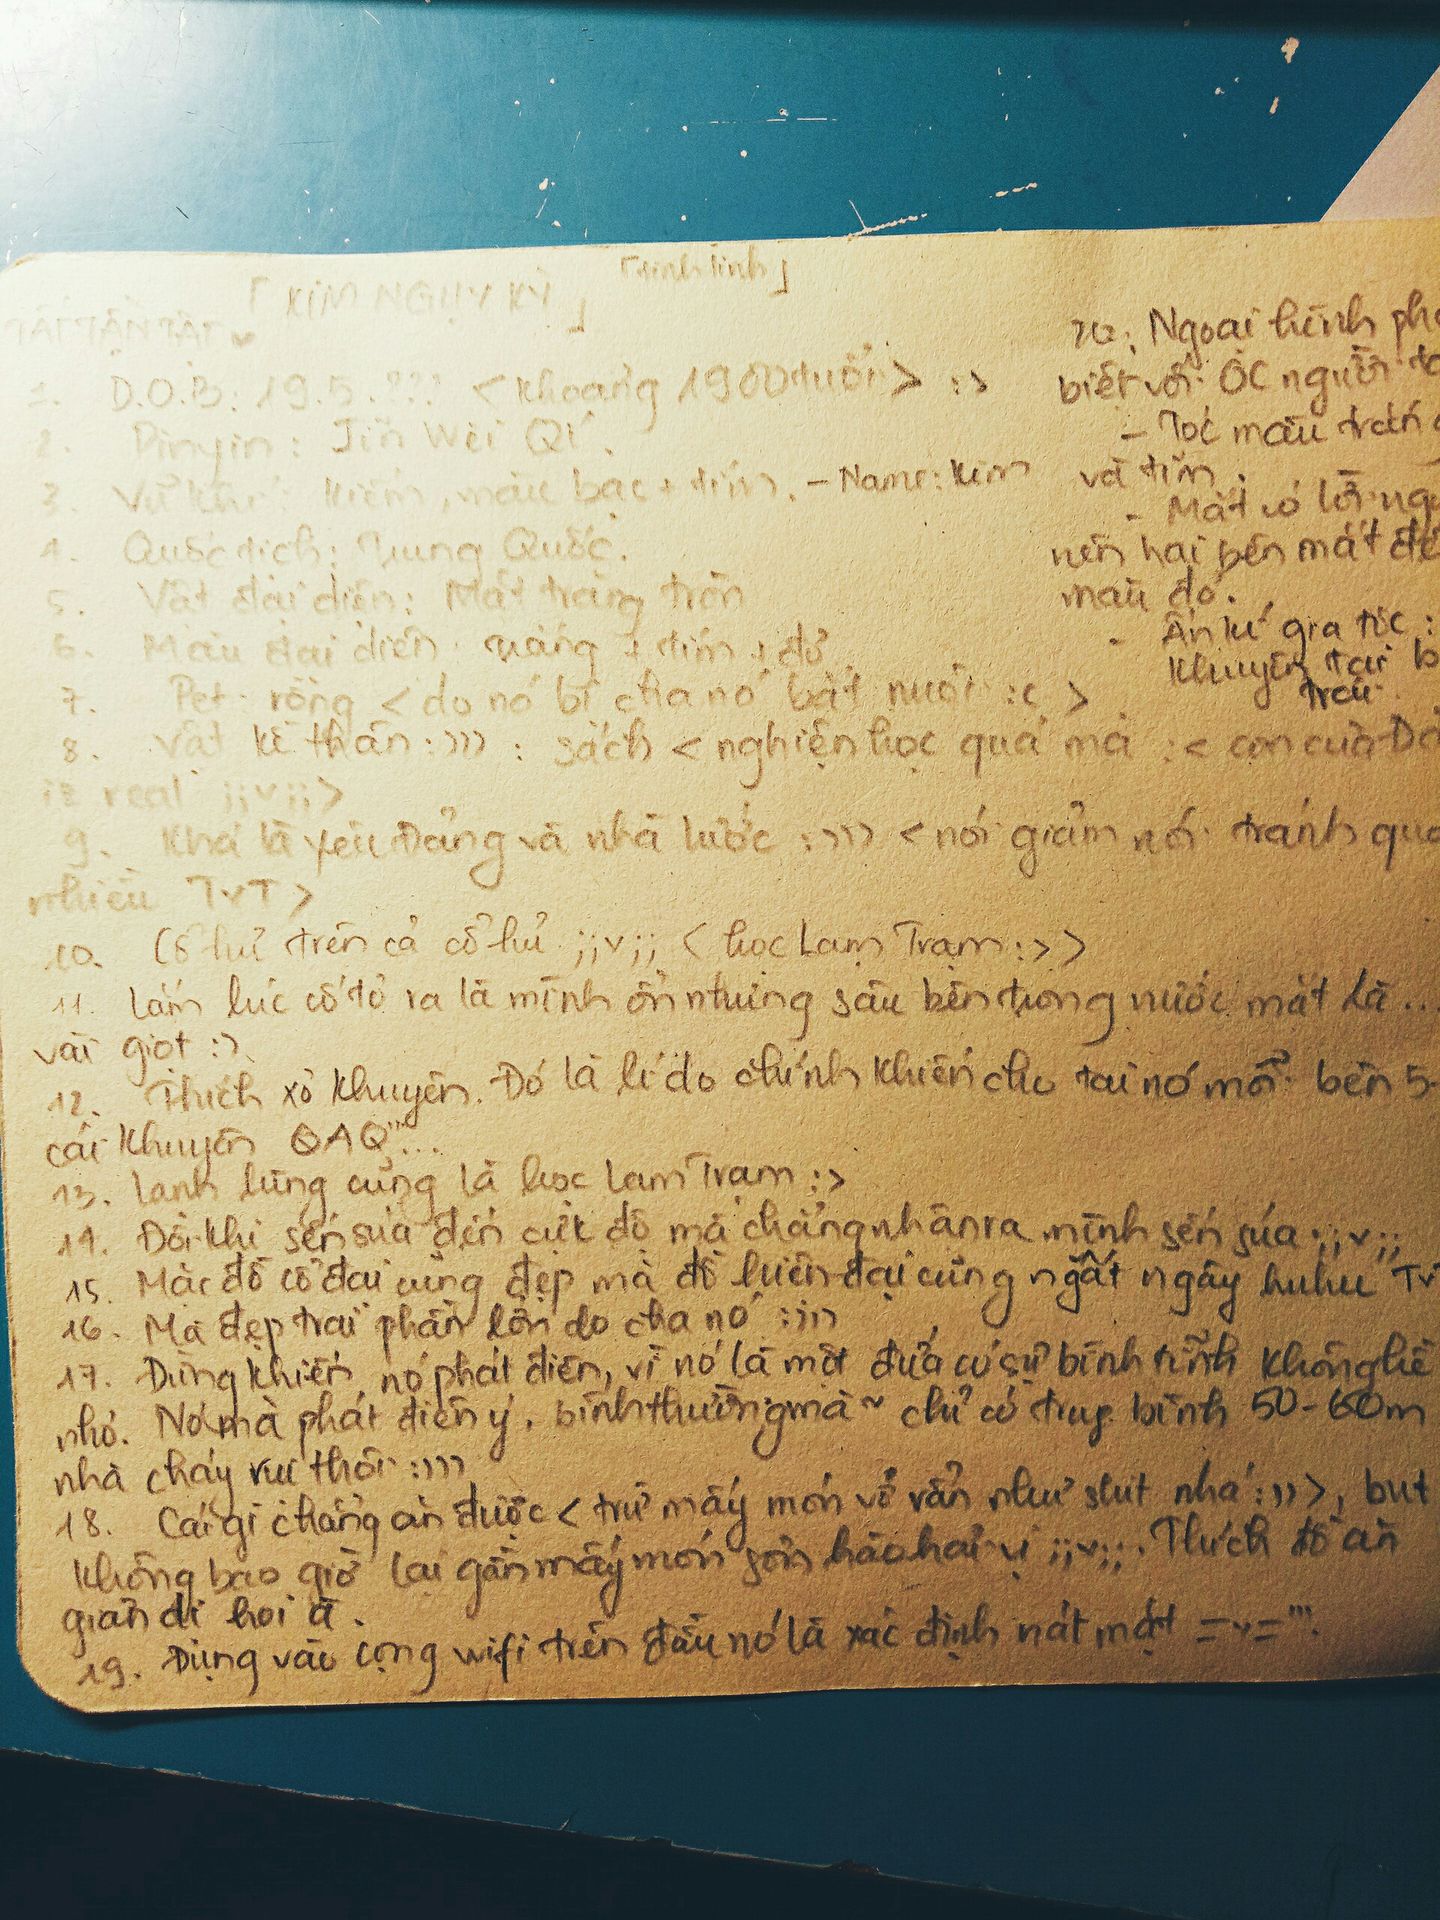 「KIM NGUY KỲ」
「tinh linh」
TẤT TẦN TẬT
1. D.O.B: 19.5.??? <khoảng 1900 tuổi> :>
2. Pinyin: Jin Wei Qi.
3. Vũ khí: kiếm, màu bạc + tím. - Name: Kim
4. Quốc tịch: Trung Quốc.
5. Vật đại diện: Mặt trăng tròn
6. Màu đại diện: trắng + tím + đỏ
7. Pet: rồng <do nó bị cha nó bắt nuôi :< >
8. Vật kè thân :))) : sách <nghiện học quá mà :< con của
is real ;;v;;>
9. Khá là yêu Đảng và nhà nước :))) <nói giảm nói tránh quá
nhiều TvT>
10. Cổ hủ trên cả cổ hủ ;;v;; <học Lam Trạm :> >
11. Lắm lúc cố tỏ ra là mình ổn nhưng sâu bên trong nước mắt là ...
vài giọt :>
12. Thích xỏ khuyên. Đó là lí do chính khiến cho tai nó mỗi bên 5-
cái khuyên QAQ"...
13. Lạnh lùng cũng là học Lam Trạm :>
14. Đôi khi sến súa đến cực độ mà chẳng nhận ra mình sến súa ;;v;;
15. Mặc đồ cổ đại cũng đẹp mà đồ hiện đại cũng ngất ngây huhu
16. Mã đẹp trai phần lớn do cha nó :)))
17. Đừng khiến nó phát điên, vì nó là một đứa có sự bình tĩnh không hề
nhỏ. Nó mà phát điên ý, bình thường mà ~ chỉ có trung bình 50-60m
nhà cháy rụi thôi :)))
18. Cái gì chẳng ăn được <trừ mấy món vớ vẩn như shit nhá :))>, but
không bao giờ lại gần mấy món sơn hào hải vị ;;v;;. Thích đồ ăn
giản dị hơi à.
19. Đụng vào cọng wifi trên đầu nó là xác định nát mặt =v="'.
20. Ngoại hình
biệt với OC người ta
- Tóc màu trắng
và tím.
- Mắt có
nên hai bên mắt
màu đỏ.
- Ấn kí gia tộc :
khuyên tai
trái.